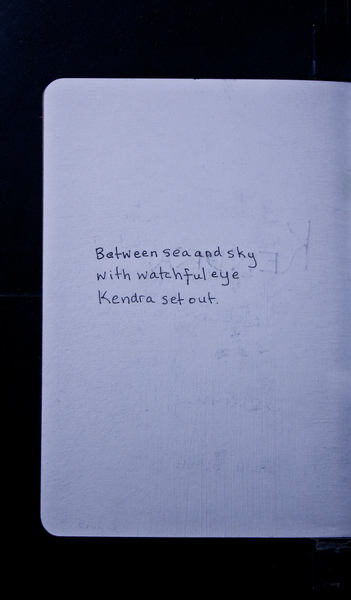 Between sea and sky
with watchful eye
Kendra set out.